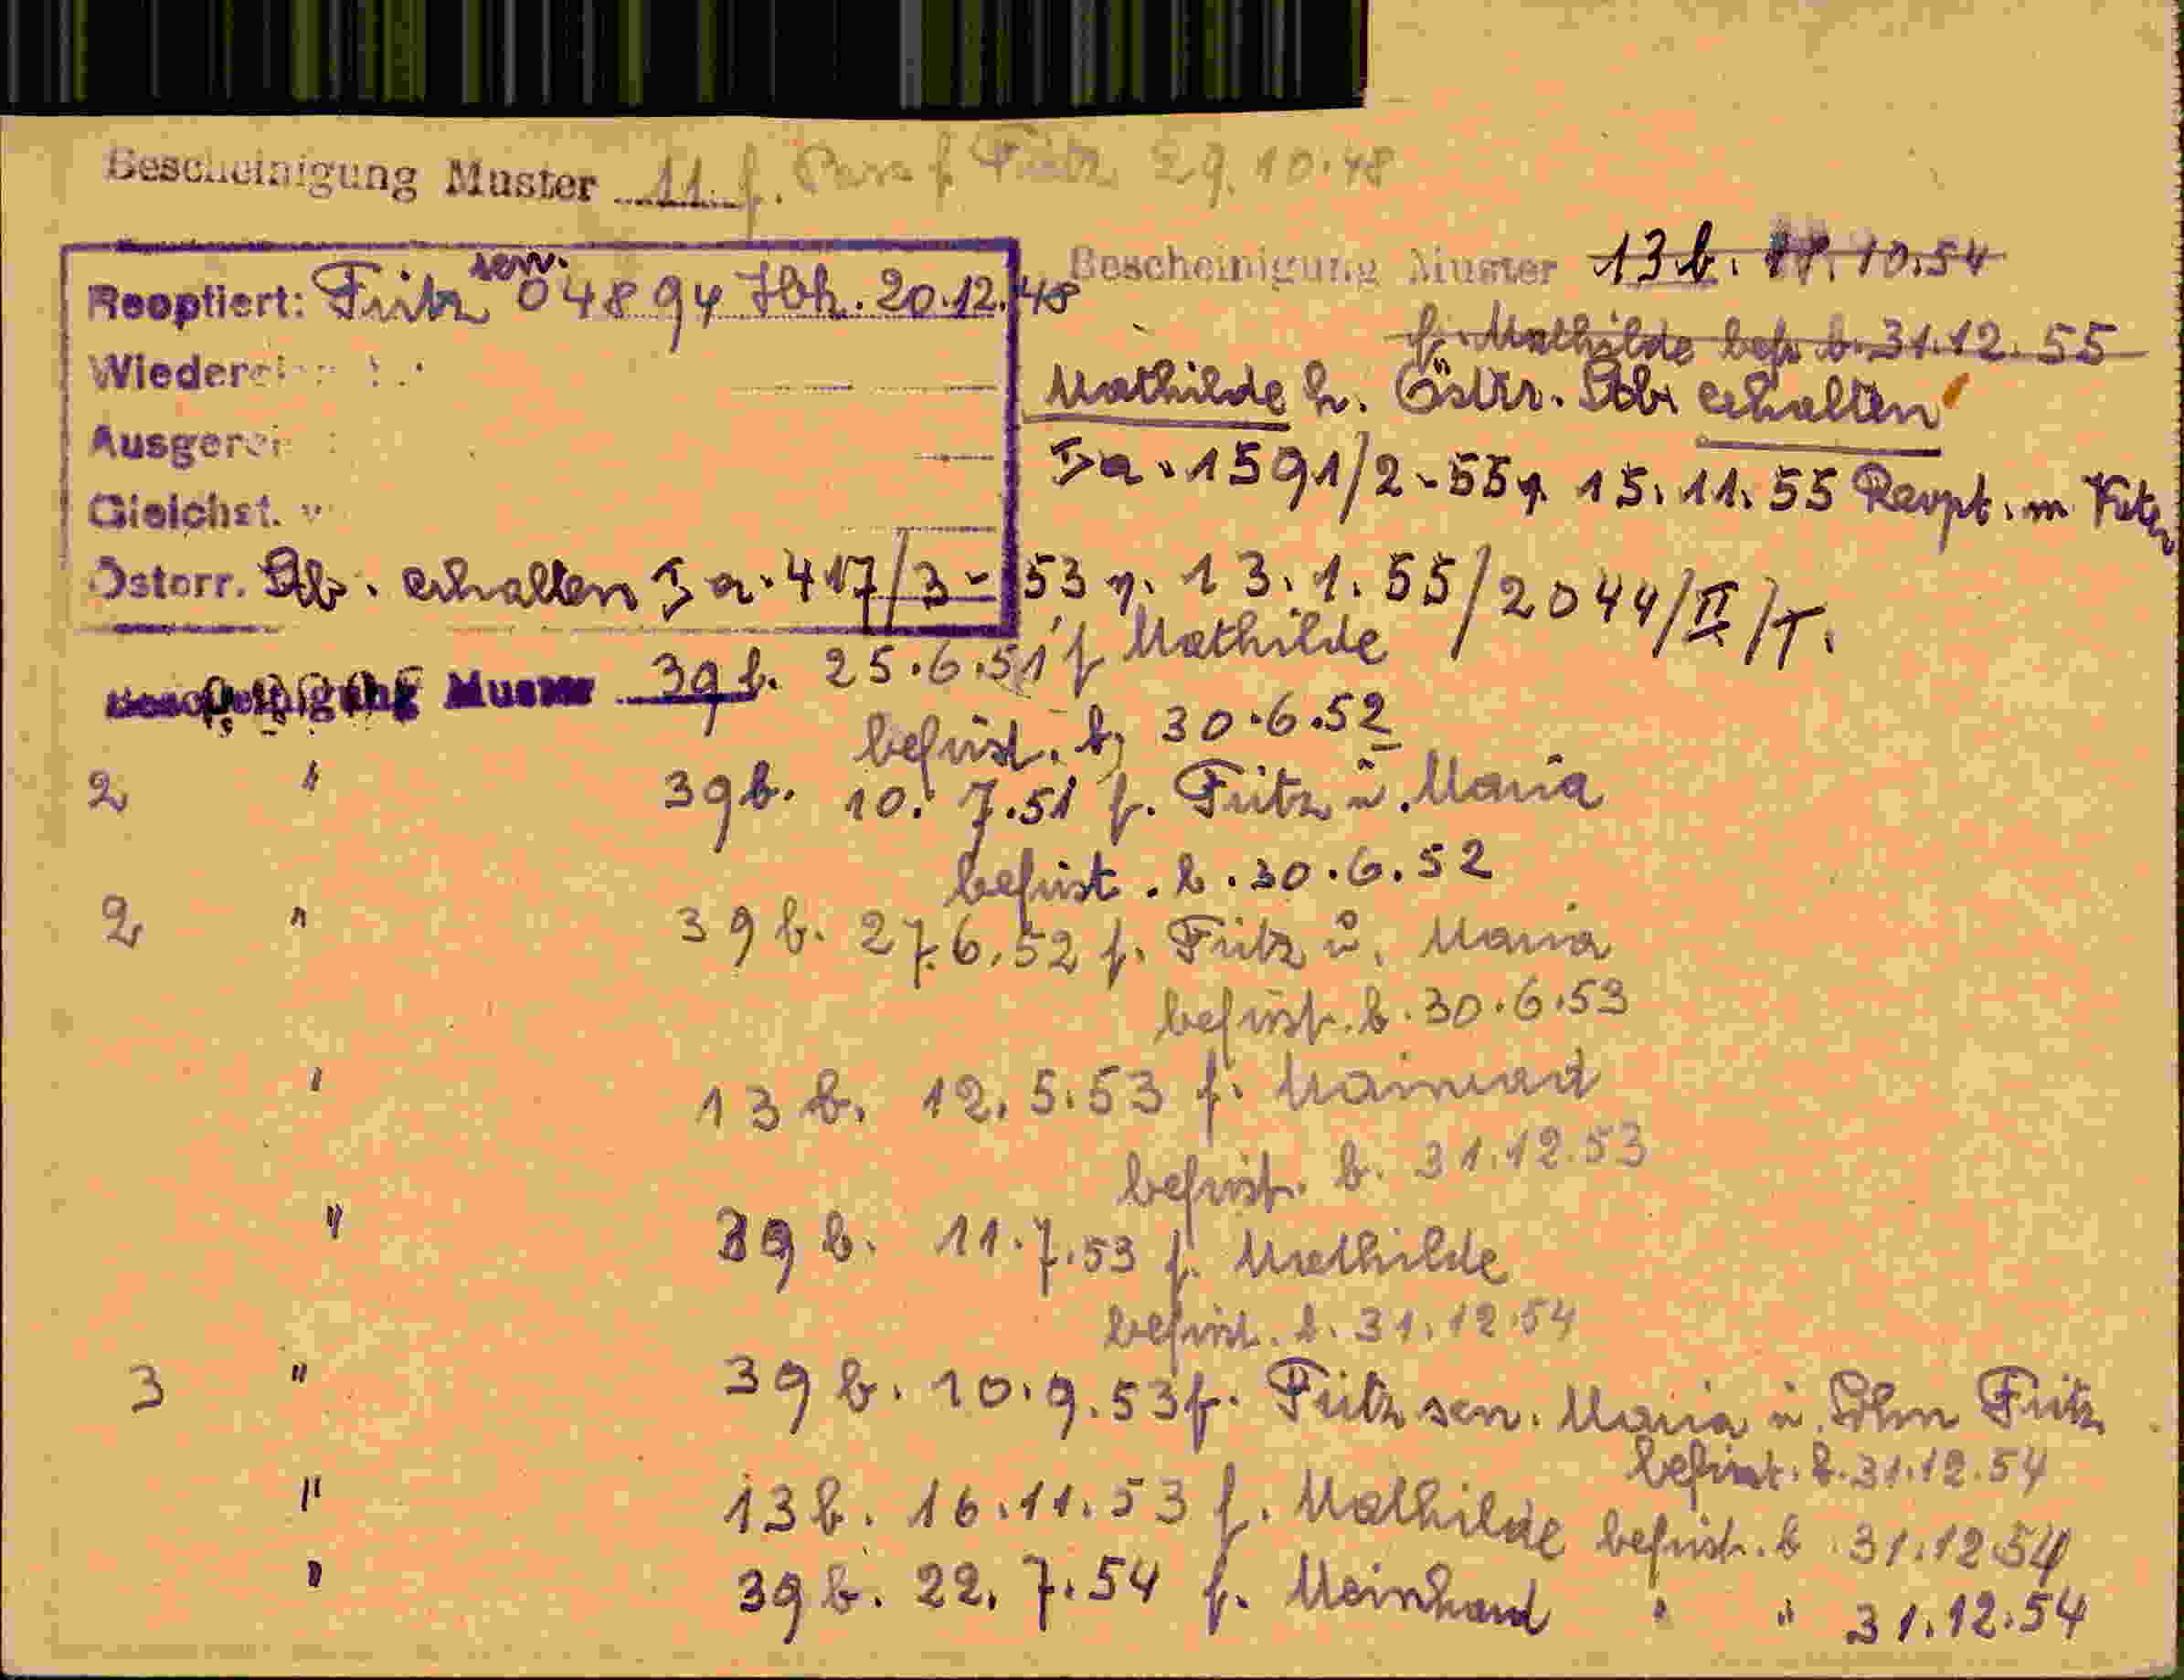 Bescheinigung Muster 11. f. Fritz 29.10.48
Bescheinigung Muster 13b. 10.54
f. Mathilde bef. b. 31.12.55
Reoptiert: Fritz sen. 04894 Hbh. 20.12.48
Mathilde h. Östrr. Stb. erhalten
Ia. 1591/2-55 v. 15.11.55 Reopt. m
Ausgerei
Gleichst. v
Österr. Stb. erhalten Ia. 417/3-53 v. 13.1.55/2044/II/T.
Bescheinigung Muster 39b. 25.6.51 f Mathilde
befrist. b. 30.6.52
2 " 39b. 10.7.51 f. Fritz u. Maria
befrist. b. 30.6.52
2 " 39b. 27.6.52 f. Fritz u. Maria
befrist. b. 30.6.53
" 13b. 12.5.53 f. Mainrad
befrist. b. 31.12.53
" 39b. 11.7.53 f. Mathilde
befrist. b. 31.12.54
3 " 39b. 10.9.53 f. Fritz sen. Maria u. Sohn Fritz
befrist. b. 31.12.54
" 13b. 16.11.53 f. Mathilde befrist. b 31.12.54
" 39b. 22.7.54 f. Meinhard " " 31.12.54